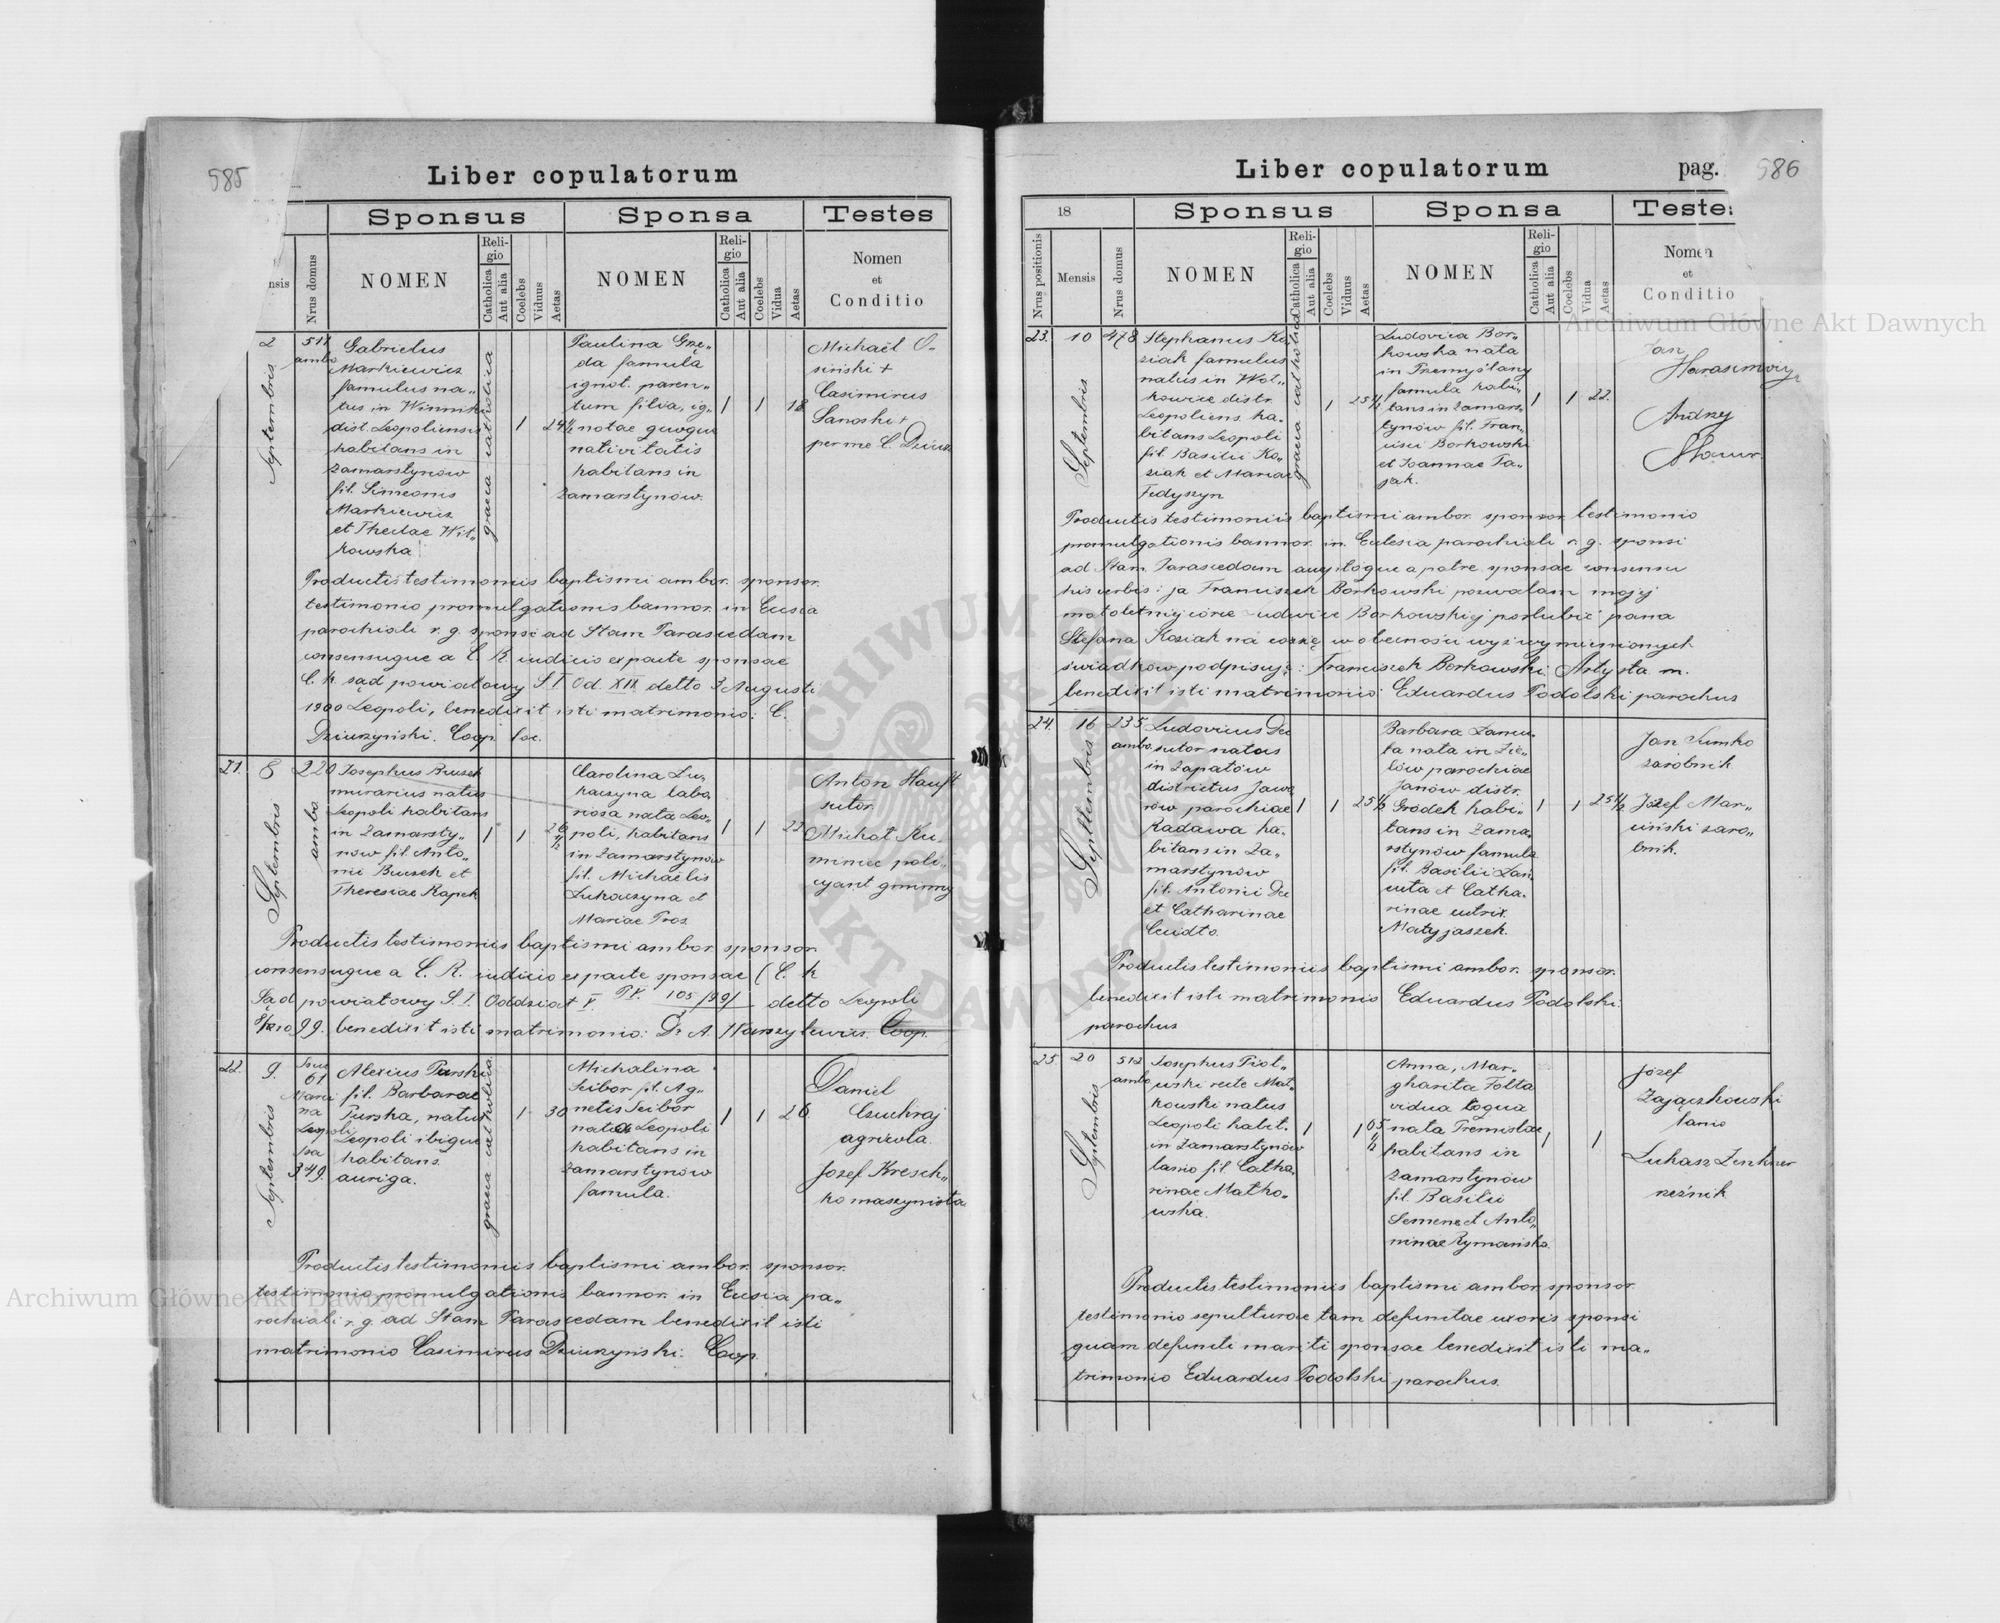 585
Liber copulatorum
Sponsus
Sponsa
Testes
Nrus domus
NOMEN
Religio
Catholica
Aut alia
Coelebs
Viduus
Aetas
NOMEN
Religio
Catholica
Aut alia
Coelebs
Vidua
Aetas
Nomen
et
Conditio
2
Septembris
511
ambo
Gabrielus
Markiewicz
famulus na„
tus in Winniki
dist. Leopoliensis
habitans in
Zamarstynów
fil. Simeonis
Markiewicz
et Theclae Wit„
kowska
graeca catholica
1
24 1/2
Paulina Grzę„
da famula
ignot. paren„
tum filia, ig„
notae quoque
nativitatis
habitans in
Zamarstynów.
1
1
18
Michaël O„
siński +
Casimirus
Sanoski +
per me C. Dziurz
Productis testimoniis baptismi ambor. sponsor.
testimonio promulgationis bannor. in Eccsia
parochiali r. g. sponsi ad Stam Parascedam
consensuque a C. R. iudicio ex parte sponsae
C. k. sąd powiatowy S. I Od. XIII detto 3 Augusti
1900 Leopoli, benedixit isti matrimonio: C.
Dziurzyński. Coop. loc.
21.
8
Septembris
220
ambo
Josephus Bursek
murarius natus
Leopoli habitans
in Zamarsty„
nów fil. Anto„
nii Bursek et
Theresiae Rapek
1
1
26 1/2
Carolina Lu„
kaszyna labo„
riosa nata Leo„
poli, habitans
in Zamarstynów
fil. Michaëlis
Lukaszyna et
Mariae Pros
1
1
22
Anton Haupt
sutor
Michał Ku„
miniec poli„
cyant gminny
Productis testimoniis baptismi ambor. sponsor.
consensuque a C. R. iudicio ex parte sponsae (C. k
Sąd powiatowy S. I. Oddział V. P. V. 105/99/3 detto Leopoli
8/10 99. benedixit isti matrimonio: Dr A. Warszylewicz. Coop.
22.
9.
Septembris
61
349.
Alexius Purski
fil. Barbarae
Purska, natus
Leopoli ibique
habitans.
auriga.
graeca catholica
1
30
Michalina
Scibor fil. Ag„
netis Scibor
nata Leopoli
habitans in
Zamarstynów
famula.
1
1
26
Daniel
Czuchraj
agricola.
Jozef Kresch„
ko maszynista
Productis testimoniis baptismi ambor. sponsor.
testimonio promulgationis bannor. in Eccsia pa„
rochiali r. g. ad Stam Parascedam benedixit isti
matrimonio Casimirus Dziurzyński: Coop.
Liber copulatorum
pag.
586
18
Sponsus
Sponsa
Testes
Nrus positionis
Mensis
Nrus domus
NOMEN
Religio
Catholica
Aut alia
Coelebs
Viduus
Aetas
NOMEN
Religio
Catholica
Aut alia
Coelebs
Vidua
Aetas
Nomen
et
Conditio
23.
10
Septembris
478
Stephanus Ko„
ziak famulus
natus in Woł„
kowice distr.
Leopoliens. ha„
bitans Leopoli
fil. Basilii Ko„
ziak et Mariae
Fedyszyn
graeca catholica
1
25 1/2
Ludovica Bor„
kowska nata
in Przemyślany
famula habi„
tans in Zamars„
tynów fil. Fran„
cisci Borkowski
et Joannae Pa„
jak.
1
1
22
Jan
Harasimowicz
Andrzej
Mazur
Productis testimoniis baptismi ambor. sponsor. testimonio
promulgationis bannor. in Eclesia parochiali r. g. sponsi
ad Stam. Parascedam acceptoque a patre sponsae consensu
his verbis: ja Franciszek Borkowski pozwalam mojej
małoletniej córce Ludwice Borkowskiej poślubić pana
Stefana Koziak na coszę w obecności wyż wymienionych
świadków podpisuję: Franciszek Borkowski. Artysta m.
benedixit isti matrimonio: Eduardus Podolski parochus
24.
16
Septembris
235
ambo
Ludovicus Dec
sutor natus
in Zapałów
districtus Jawo
rów parochiae
Radawa ha„
bitans in Za„
marstynów
fil. Antonii Dec
et Catharinae
Cudto.
1
1
25 1/2
Barbara Zancu„
ta nata in Zie„
lów parochiae
Janów distr.
Gródek habi„
tans in Zama„
rstynów famula
fil. Basilii Zan
cuta et Catha„
rinae
Matyjaszek.
1
1
25 1/2
Jan Sumko
zarobnik
Józef Mar„
ciński zaro„
bnik.
Productis testimoniis baptismi ambor. sponsor.
benedixit isti matrimonio Eduardus Podolski.
parochus
25.
20
Septembris
512
ambo
Josephus Piot„
wski recte Mat„
kowski natus
Leopoli habit.
in Zamarstynów
lanio fil. Catha„
rinae Matko„
wska.
1
1
Anna, Mar„
gharita Folta
vidua
nata Premislae
habitans in
Zamarstynów
fil. Basilii
Semene et Anto„
ninae Rymańska.
1
1
Józef
Zajączkowski
lanio
Lukasz Zenkner
rzeźnik
Productis testimoniis baptismi ambor. sponsor.
testimonio sepulturae tam defunctae uxoris sponsi
quam defuncti mariti sponsae benedixit isti ma„
trimonio Eduardus Podolski parochus.
Archiwum Główne Akt Dawnych
Archiwum Główne Akt Dawnych
ARCHIWUM
AKT DAWNYCH